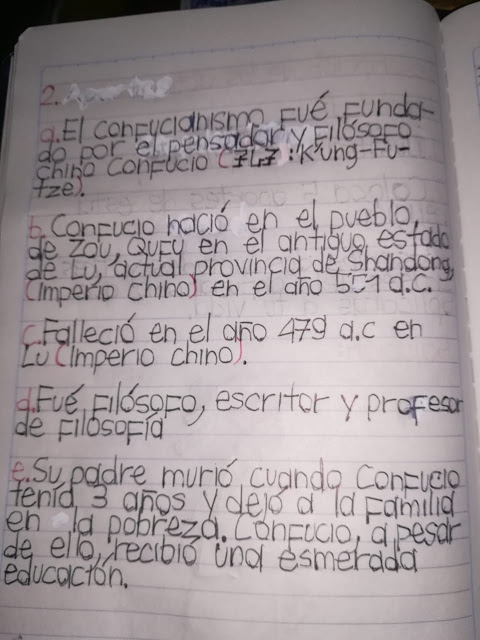 2.
a. El confucianismo fué funda-
do por el pensador y filósofo
chino Confucio (: K'ung-Fu-
tze).
b. Confucio nació en el pueblo,
de Zou, Qufu en el antiguo estado
de Lu, actual provincia de Shandong,
(Imperio chino) en el año 551 a.c.
c. Falleció en el año 479 a.c en
Lu (Imperio chino).
d. Fué filósofo, escritor y profesor
de filosofía
e. Su padre murió cuando Confucio
tenía 3 años y dejó a la familia
en la pobreza. Confucio, a pesar
de ello, recibió una esmerada
educación.